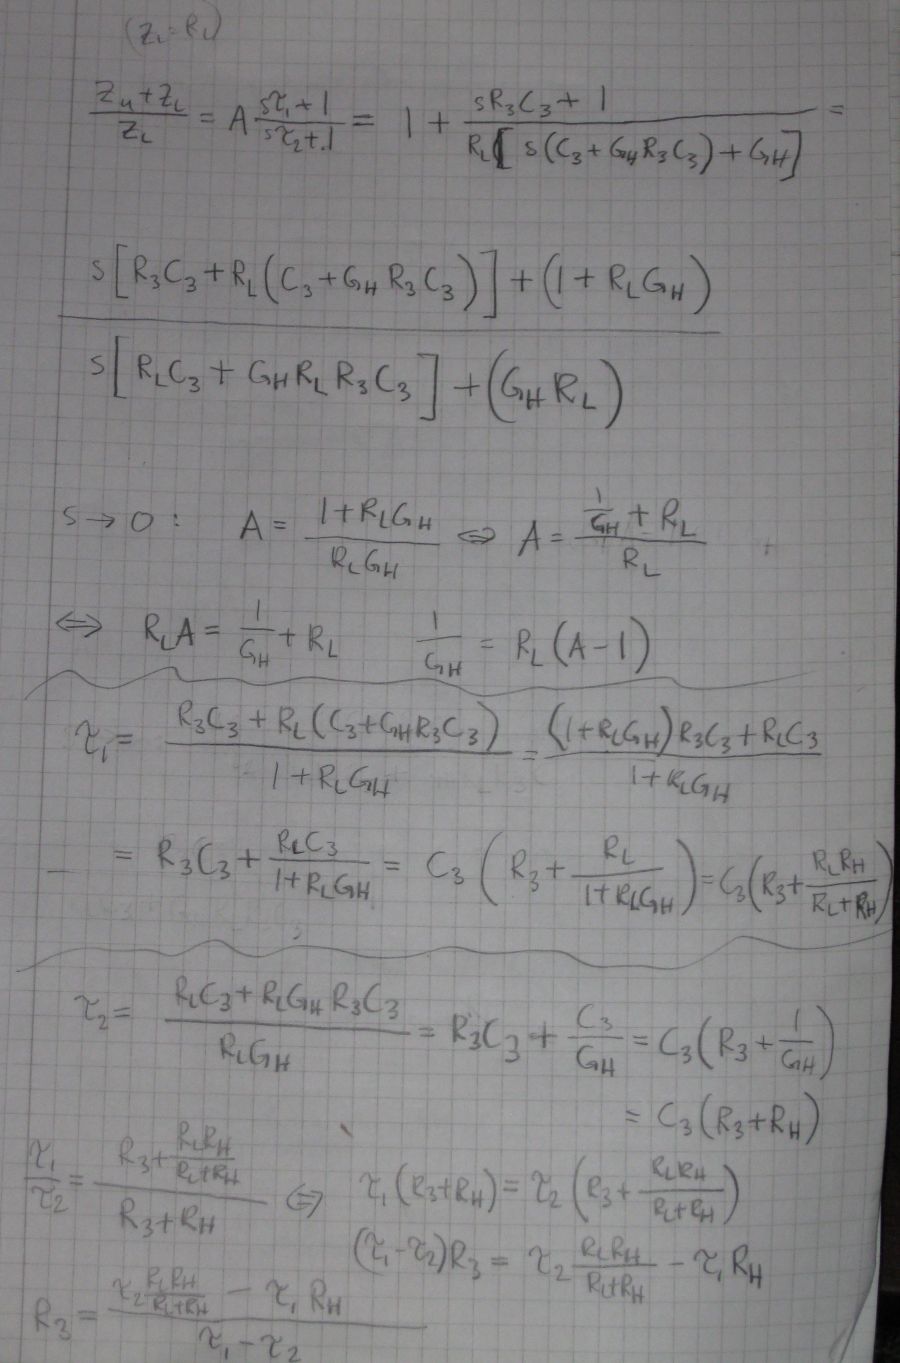 (Z_L = R_L)
\frac{Z_H + Z_L}{Z_L} = A \frac{sτ_1 + 1}{sτ_2 + 1} = 1 + \frac{sR_3C_3 + 1}{R_L[s(C_3 + G_H R_3 C_3) + G_H]} =
\frac{s[R_3C_3 + R_L(C_3 + G_H R_3 C_3)] + (1 + R_L G_H)}{s[R_L C_3 + G_H R_L R_3 C_3] + (G_H R_L)}
s → 0 : A = \frac{1 + R_L G_H}{R_L G_H} ⇔ A = \frac{\frac{1}{G_H} + R_L}{R_L}
⇔ R_L A = \frac{1}{G_H} + R_L \frac{1}{G_H} = R_L (A - 1)
τ_1 = \frac{R_3C_3 + R_L(C_3 + G_H R_3 C_3)}{1 + R_L G_H} = \frac{(1 + R_L G_H) R_3C_3 + R_L C_3}{1 + R_L G_H}
= R_3C_3 + \frac{R_L C_3}{1 + R_L G_H} = C_3 (R_3 + \frac{R_L}{1 + R_L G_H}) = C_3 (R_3 + \frac{R_L R_H}{R_L + R_H})
τ_2 = \frac{R_L C_3 + R_L G_H R_3 C_3}{R_L G_H} = R_3 C_3 + \frac{C_3}{G_H} = C_3 (R_3 + \frac{1}{G_H})
= C_3 (R_3 + R_H)
\frac{τ_1}{τ_2} = \frac{R_3 + \frac{R_L R_H}{R_L + R_H}}{R_3 + R_H} ⇔ τ_1 (R_3 + R_H) = τ_2 (R_3 + \frac{R_L R_H}{R_L + R_H})
(τ_1 - τ_2) R_3 = τ_2 \frac{R_L R_H}{R_L + R_H} - τ_1 R_H
R_3 = \frac{τ_2 \frac{R_L R_H}{R_L + R_H} - τ_1 R_H}{τ_1 - τ_2}